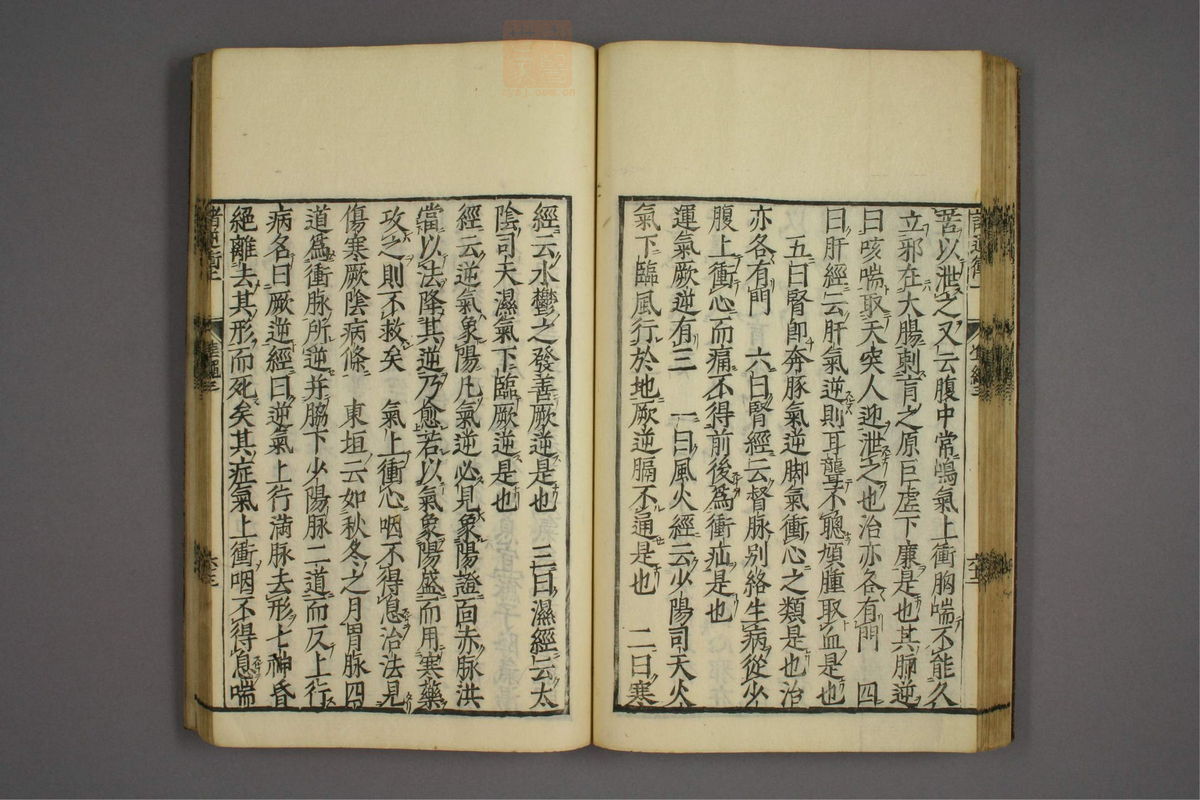 苦以泄之又云腹中常鳴氣上衝胸喘不能久
立邪在大腸刺肓之原巨虛下廉是也其肺逆
曰咳喘取天突人迎泄之也治亦各有門　四
曰肝經云肝氣逆則耳聾不聰頰腫取血是也
五曰腎卽奔豚氣逆脚氣衝心之類是也治
亦各有門　六曰腎經云督脉别絡生病從少
腹上衝心而痛不得前後爲衝疝是也
運氣厥逆有三　一曰風火經云少陽司天火
氣下臨風行於地厥逆膈不通是也　二曰寒
經云水鬱之發善厥逆是也　三曰濕經云太
陰司天濕氣下臨厥逆是也
經云逆氣象陽凡氣逆必見象陽證面赤脉洪
當以法降其逆乃愈若以氣象陽盛而用寒藥
攻之則不救矣　氣上衝心咽不得息治法見
傷寒厥陰病條　東垣云如秋冬之月胃脉四
道爲衝脉所逆并脇下少陽脉二道而反上行
病名曰厥逆經曰逆氣上行滿脉去形七神昏
絕離去其形而死矣其症氣上衝咽不得息喘
諸逆衝上